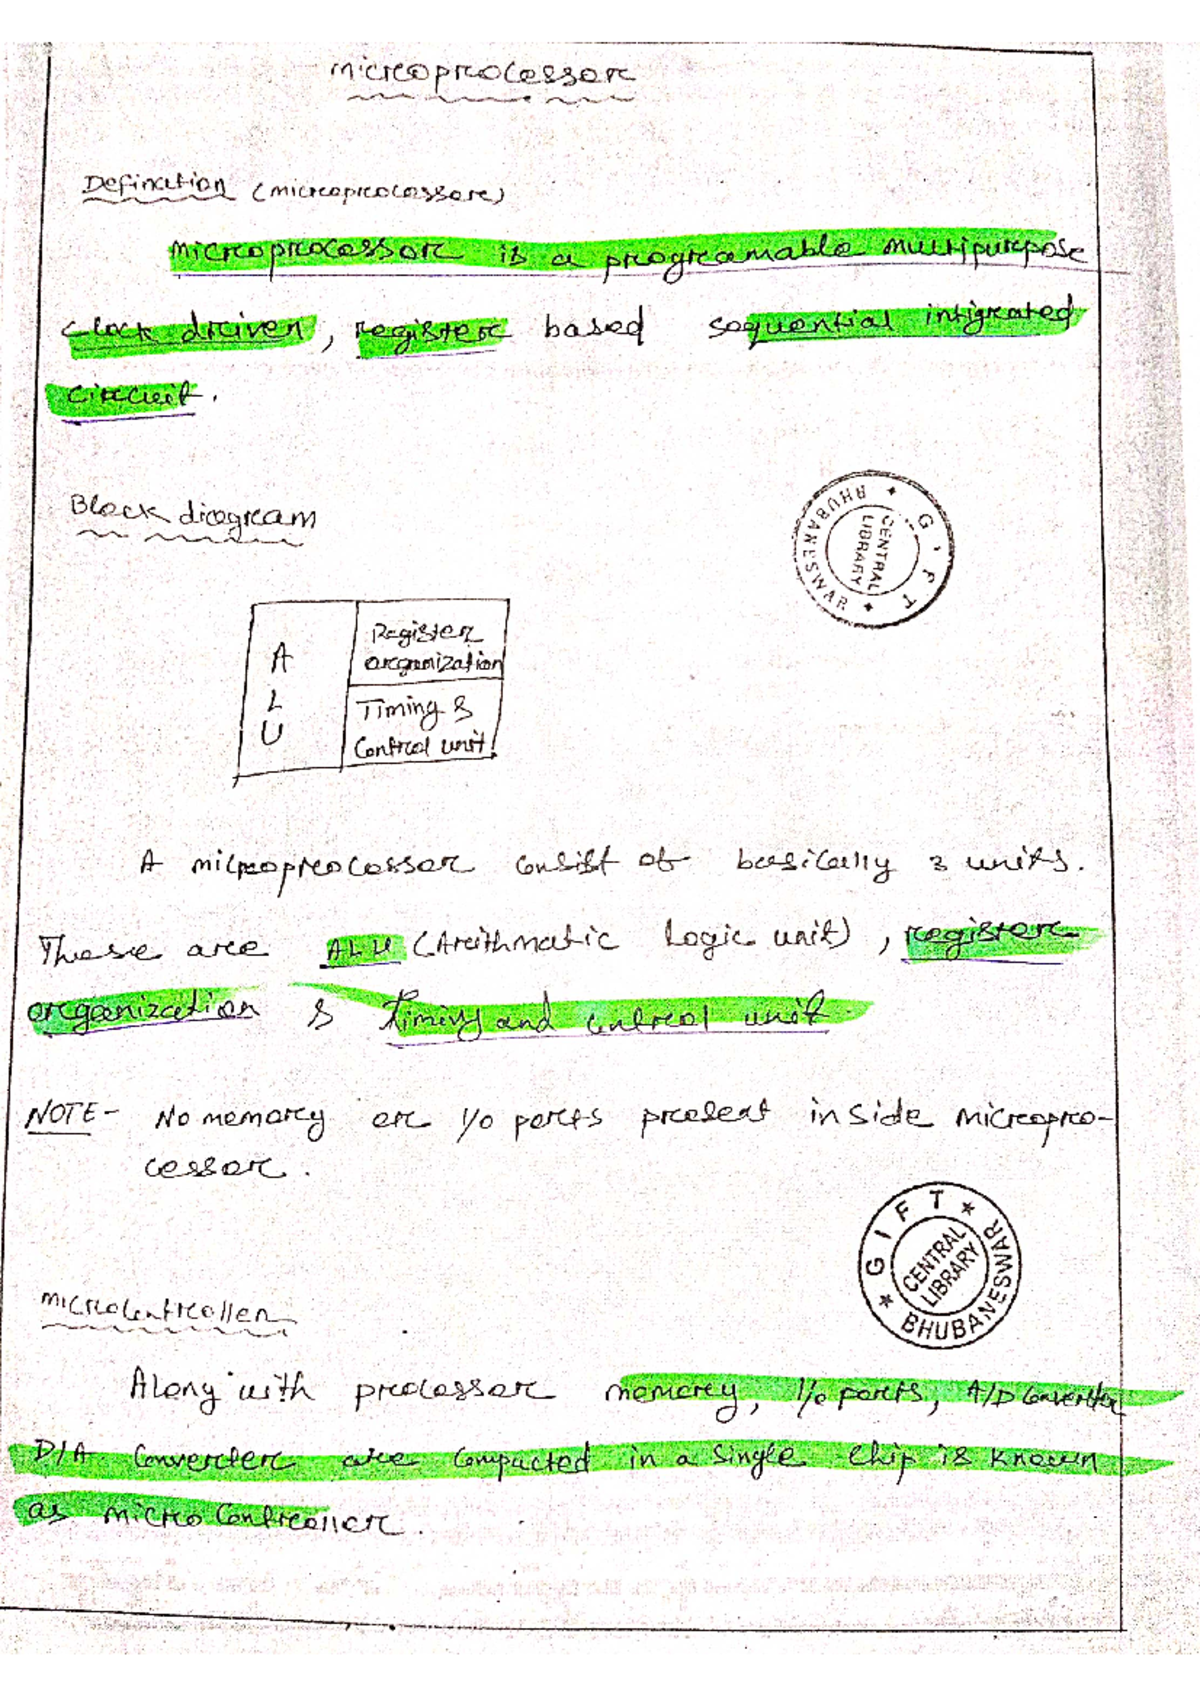 Microprocessor
Defination (microprocessor)
Microprocessor is a programable multipurpose
clock driven, register based sequential intigrated
circuit.
Block diagram
G.I.F.T
CENTRAL
LIBRARY
BHUBANESWAR
A
L
U
Register
organization
Timing &
Control unit
A microprocessor consist of basically 3 units.
These are ALU (Arithmatic Logic unit), register
organization & timing and control unit.
NOTE- No memory or I/O ports present inside micropro-
cessor.
GIFT
CENTRAL
LIBRARY
BHUBANESWAR
Microcontroller
Along with processor memory, I/O ports, A/D Converter
D/A Converter are compacted in a single chip is known
as micro Controller.